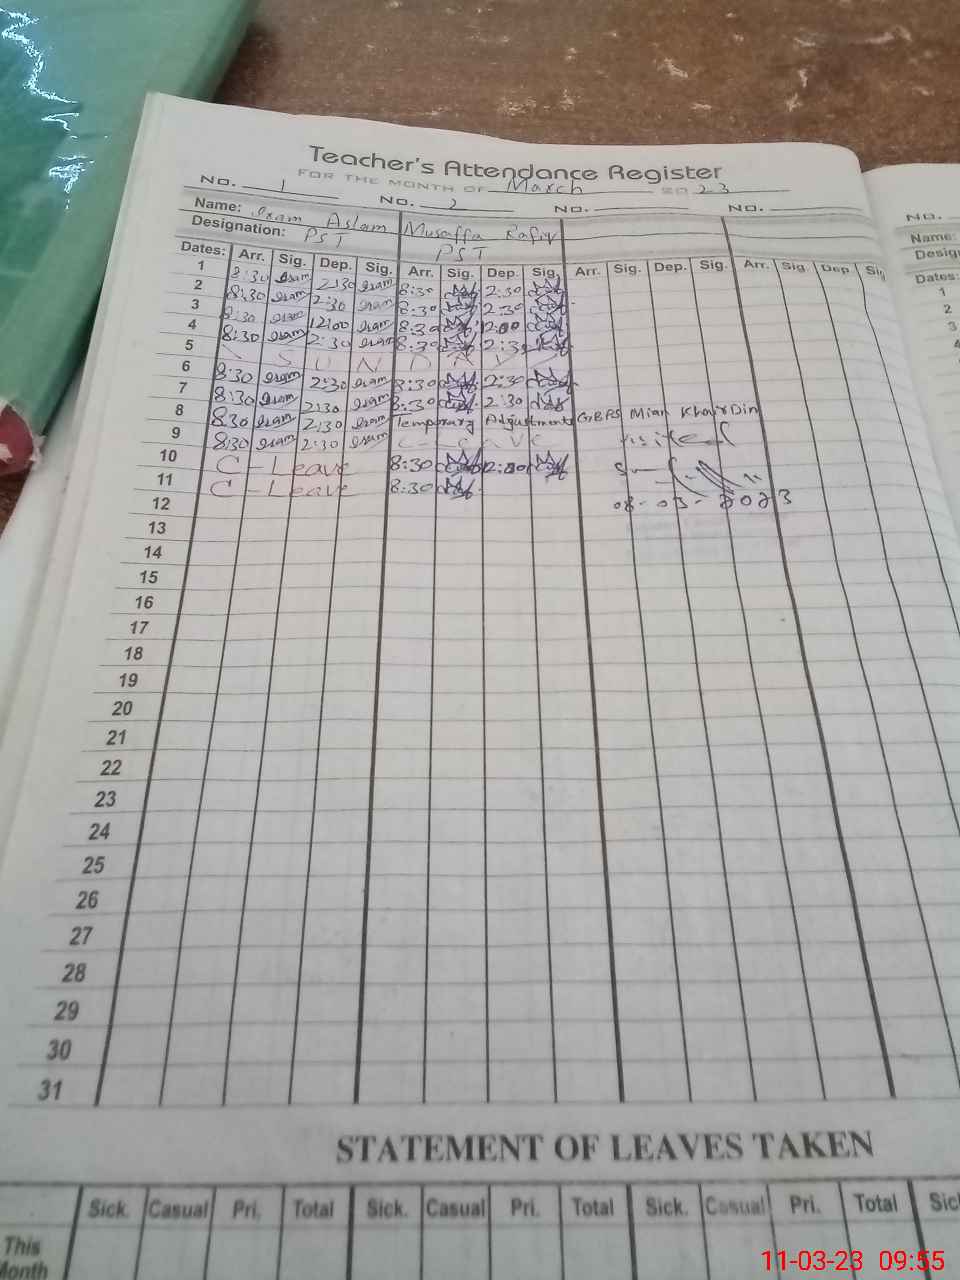 Teacher's Attendance Register
FOR THE MONTH OF March 2023
No. 1 No. 2 No. No.
Name: Iram Aslam Musaffa Rafiq
Designation: PST PST
Dates: Arr. Sig. Dep. Sig. Arr. Sig. Dep. Sig. Arr. Sig. Dep. Sig. Arr. Sig. Dep. Sig
1 8:30 Iram 2:30 Iram 8:30 2:30
2 8:30 Iram 2:30 Iram 8:30 2:30
3 8:30 Iram 12:00 Iram 8:30 12:00
4 8:30 Iram 2:30 Iram 8:30 2:30
5 S U N D A Y
6 8:30 Iram 2:30 Iram 8:30 2:30
7 8:30 Iram 2:30 Iram 8:30 2:30
8 8:30 Iram 2:30 Iram Temporary Adjustment GGBPS Mian Khair Din
9 8:30 Iram 2:30 Iram C-Leave visited
10 C-Leave 8:30 12:00
11 C-Leave 8:30
08-03-2023
12
13
14
15
16
17
18
19
20
21
22
23
24
25
26
27
28
29
30
31
STATEMENT OF LEAVES TAKEN
Sick. Casual Pri. Total Sick. Casual Pri. Total Sick. Casual Pri. Total Sic
This
Month
No.
Name:
Desig
Dates:
1
2
3
4
11-03-23 09:55